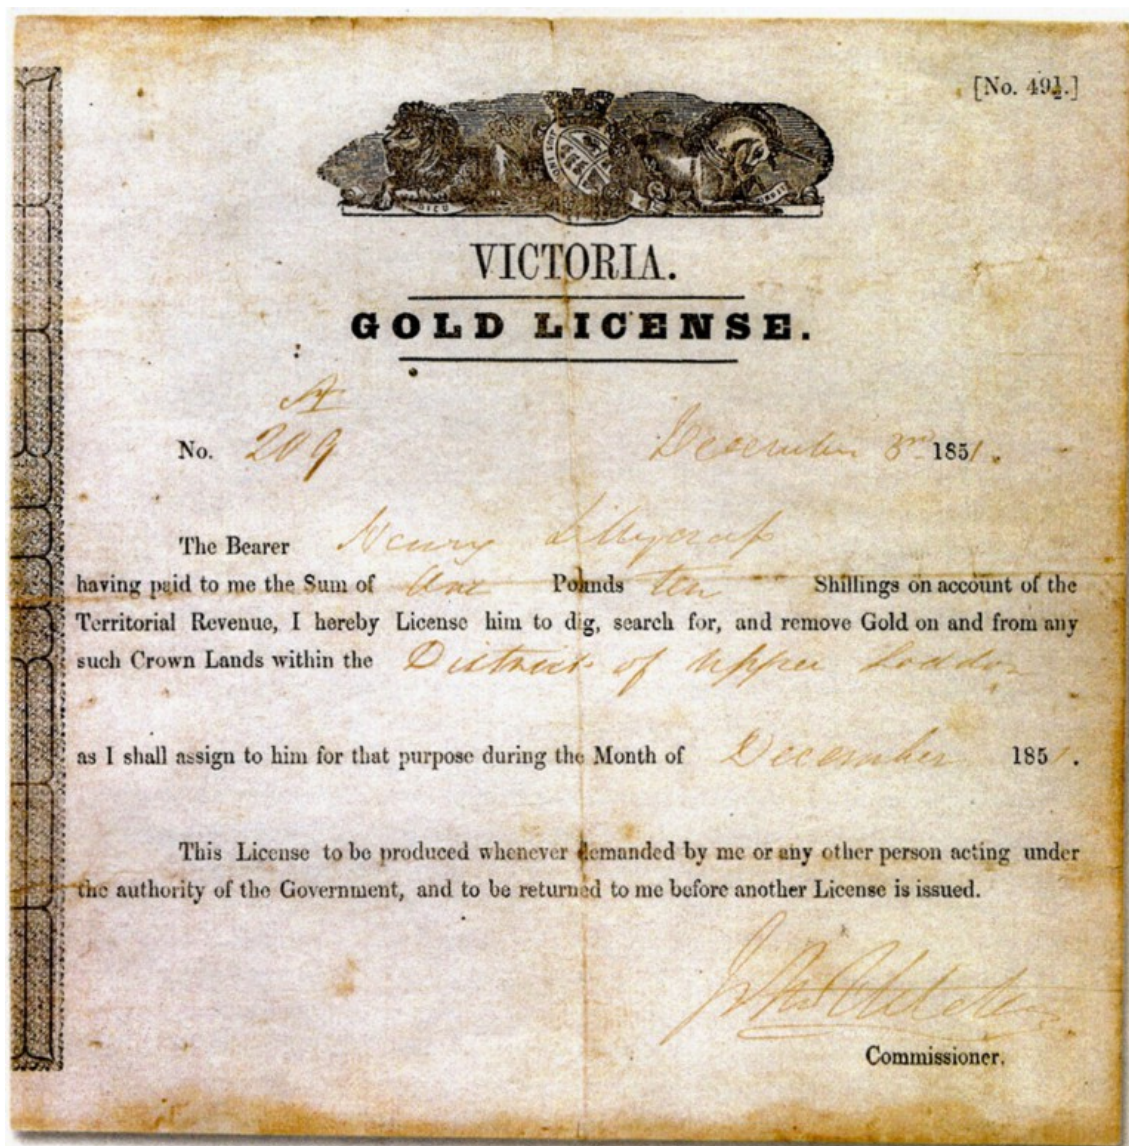 [No. 49½.]
VICTORIA.
GOLD LICENSE.
No. 209 December 3rd 1851.
The Bearer Henry
having paid to me the Sum of One Pounds ten Shillings on account of the
Territorial Revenue, I hereby License him to dig, search for, and remove Gold on and from any
such Crown Lands within the District of Upper Loddon
as I shall assign to him for that purpose during the Month of December 1851.
This License to be produced whenever demanded by me or any other person acting under
the authority of the Government, and to be returned to me before another License is issued.
Commissioner.